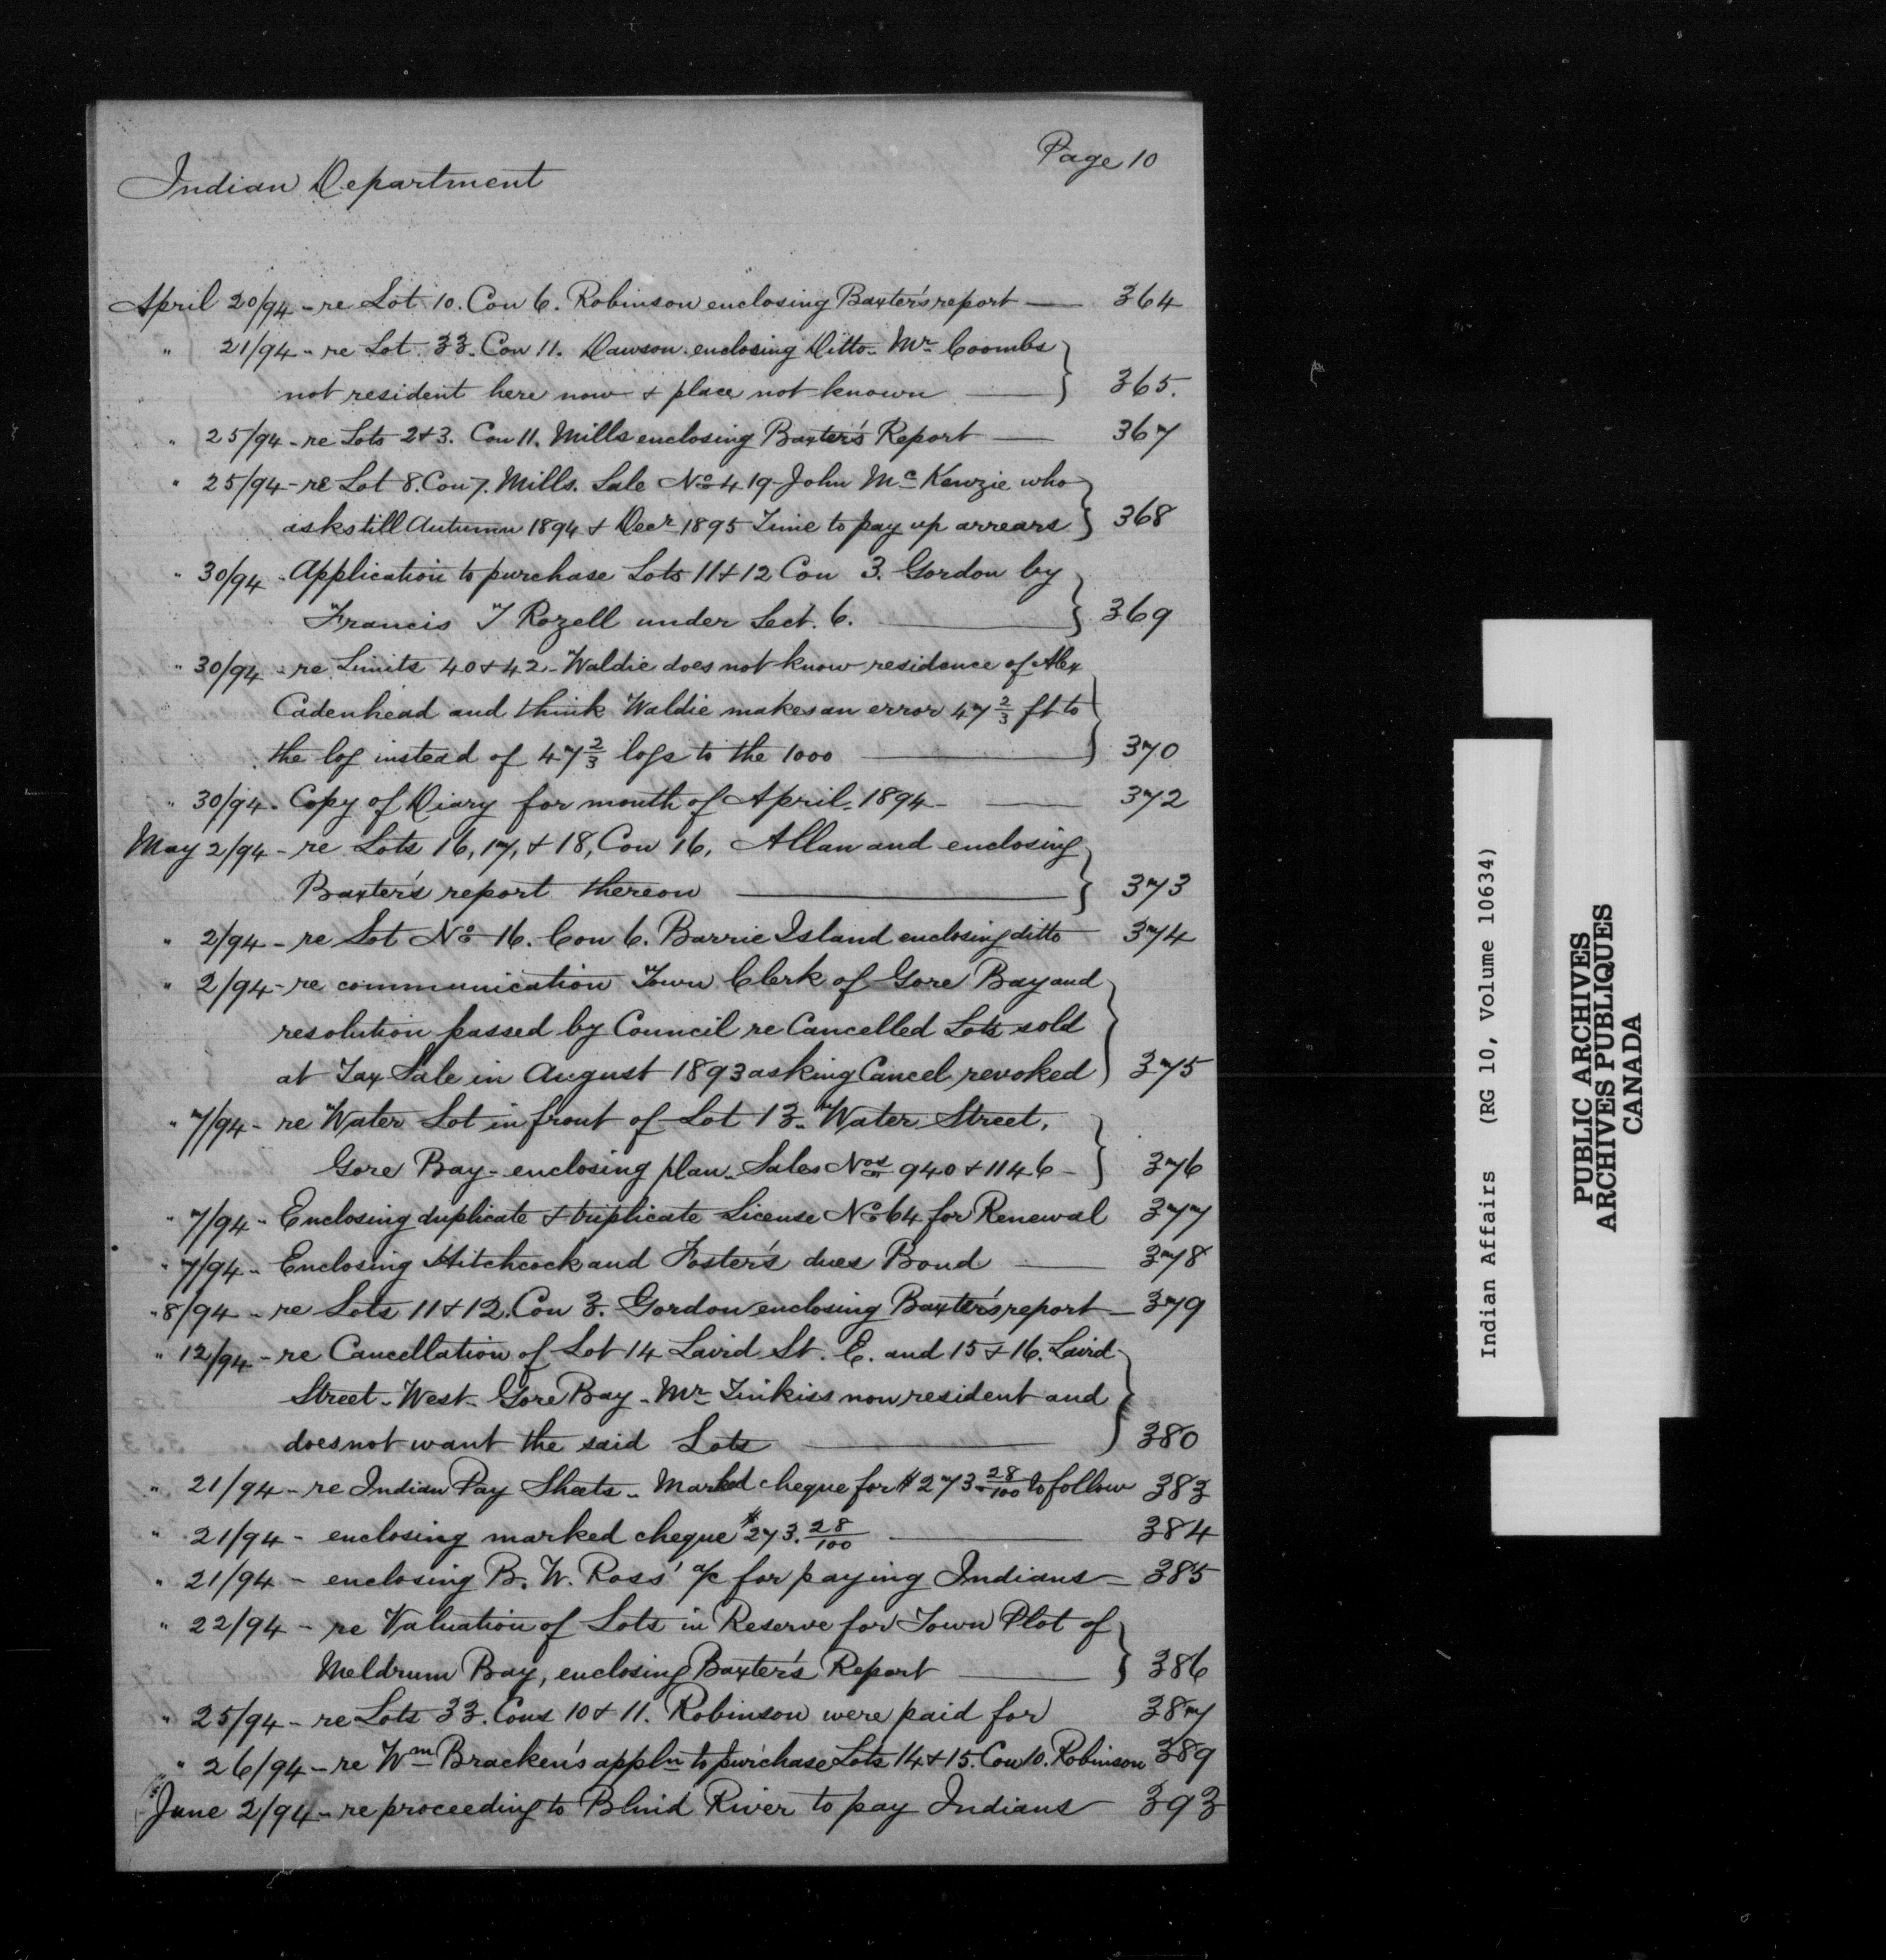 Page 10
Indian Department
April 20/94 - re Lot 10. Con 6. Robinson enclosing Baxter's report — 364
" 21/94 - re Lot 33. Con 11. Dawson enclosing Ditto - Mr Coombs
not resident here now & place not known — 365.
" 25/94 - re Lots 2 & 3. Con 11. Mills enclosing Baxter's Report — 367
" 25/94 - re Lot 8. Con 7. Mills. Sale No 419 - John McKenzie who
asks till Autumn 1894 & Decr 1895 Time to pay up arrears 368
" 30/94 - Application to purchase Lots 11 & 12 Con 3. Gordon by
Francis T Rozell under Sect. 6. — 369
" 30/94 - re Limits 40 & 42 - Waldie does not know residence of Alex
Cadenhead and think Waldie makes an error 47 2/3 ft to
the log instead of 47 2/3 logs to the 1000 — 370
" 30/94 - Copy of Diary for month of April. 1894 - — 372
May 2/94 - re Lots 16, 17, & 18, Con 16, Allan and enclosing
Baxter's report thereon — 373
" 2/94 - re Lot No 16. Con 6. Barrie Island enclosing ditto 374
" 2/94 - re communication Town Clerk of Gore Bay and
resolution passed by Council re Cancelled Lots sold
at Tax Sale in August 1893 asking Cancel revoked 375
" 7/94 - re Water Lot in front of Lot 13. Water Street,
Gore Bay - enclosing plan. Sales Nos 940 & 1146 - 376
" 7/94 - Enclosing duplicate & triplicate License No 64 for Renewal 377
" 7/94 - Enclosing Hitchcock and Foster's dues Bond — 378
" 8/94 - re Lots 11 & 12. Con 3. Gordon enclosing Baxter's report — 379
" 12/94 - re Cancellation of Lot 14 Laird St. E. and 15 & 16. Laird
Street - West - Gore Bay - Mr Tinkiss non resident and
does not want the said Lots — 380
" 21/94 - re Indian Pay Sheets - Marked cheque for $273 28/100 to follow 383
" 21/94 - enclosing marked cheque $273. 28/100 — 384
" 21/94 - enclosing B. W. Ross' a/c for paying Indians — 385
" 22/94 - re Valuation of Lots in Reserve for Town Plot of
Meldrum Bay, enclosing Baxter's Report — 386
" 25/94 - re Lots 33. Cons 10 & 11. Robinson were paid for 387
" 26/94 - re Wm Bracken's appln to purchase Lots 14 & 15. Con 10. Robinson 389
June 2/94 - re proceeding to Blind River to pay Indians 393
Indian Affairs (RG 10, Volume 10634)
PUBLIC ARCHIVES
ARCHIVES PUBLIQUES
CANADA